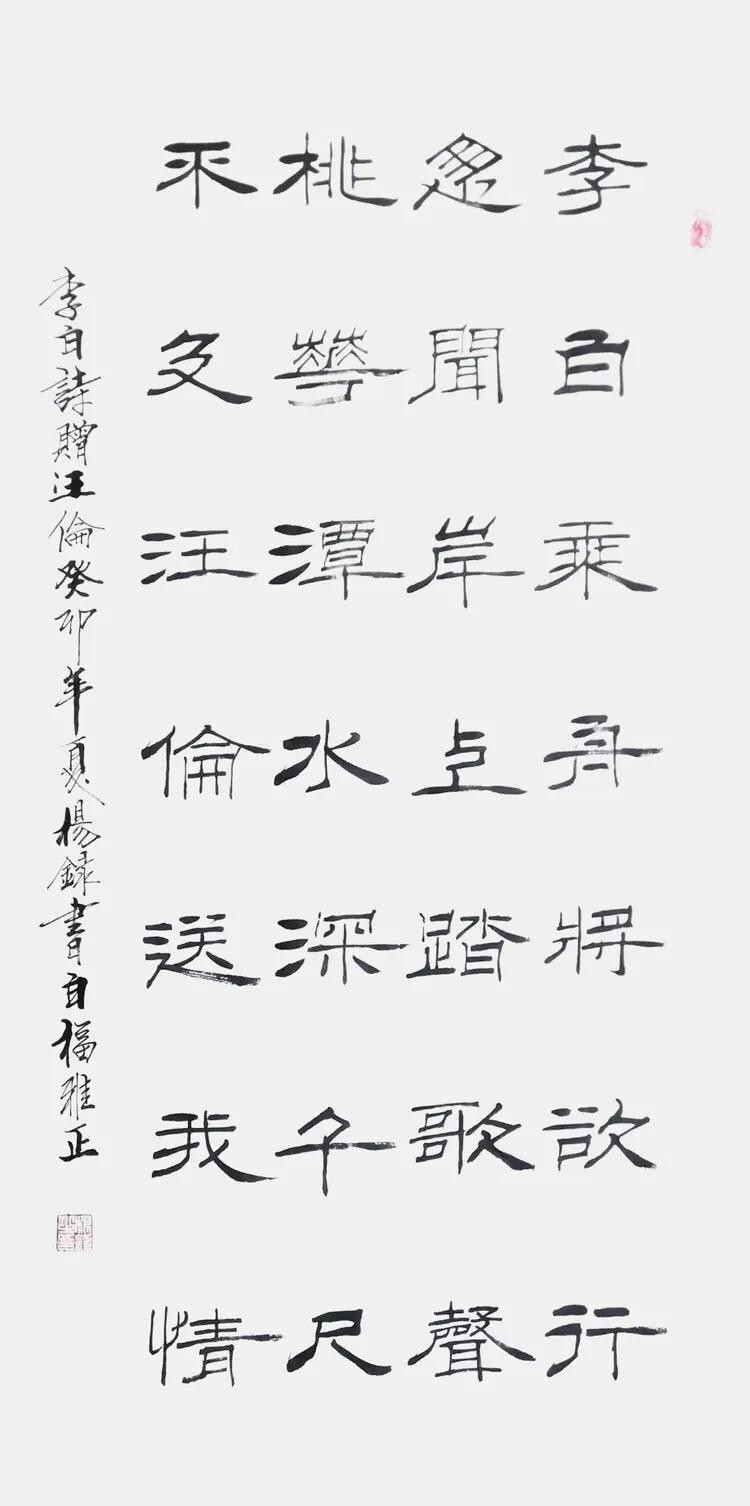 李白乘舟將欲行
忽聞岸上踏歌聲
桃華潭水深千尺
不及汪倫送我情
李白詩贈汪倫癸卯年夏楊錄書自福雅正